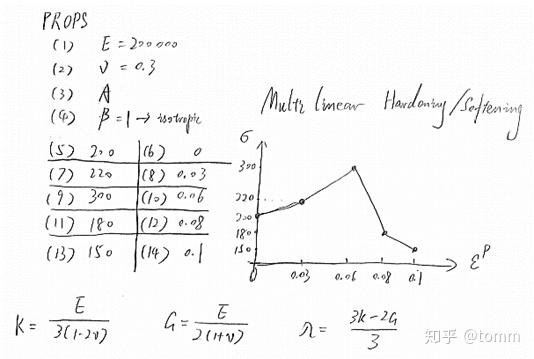 PROPS
(1) E = 200000
(2) ν = 0.3
(3) A
(4) β = 1 → isotropic
(5) 200 (6) 0
(7) 220 (8) 0.03
(9) 300 (10) 0.06
(11) 180 (12) 0.08
(13) 150 (14) 0.1
Multi linear Hardening/Softening
σ
300
220
200
180
150
0 0.03 0.06 0.08 0.1 ε^P
K = E / 3(1-2ν) G = E / 2(1+ν) λ = 3K-2G / 3
知乎 @tomm